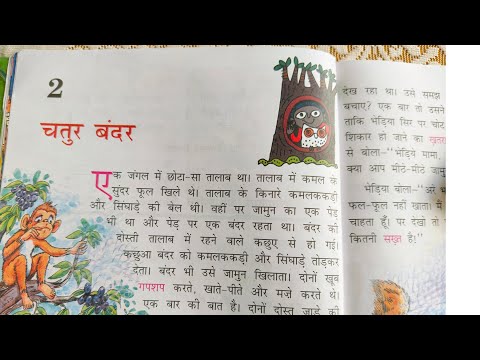 2
चतुर बंदर
एक जंगल में छोटा-सा तालाब था। तालाब में कमल के
सुंदर फूल खिले थे। तालाब के किनारे कमलककड़ी
और सिंघाड़े की बेल थी। वहीं पर जामुन का एक पेड़
भी था और पेड़ पर एक बंदर रहता था। बंदर की
दोस्ती तालाब में रहने वाले कछुए से हो गई।
कछुआ बंदर को कमलककड़ी और सिंघाड़े तोड़कर
देता। बंदर भी उसे जामुन खिलाता। दोनों खूब
गपशप करते, खाते-पीते और मज़े करते थे।
एक बार की बात है। दोनों दोस्त जाड़े की
देख रहा था। उसे समझ
बचाए? एक बार तो उसने
ताकि भेड़िया सिर पर चोट
शिकार हो जाने का खतरा
से बोला—"भेड़िये मामा,
क्या आप मीठे-मीठे जामुन
भेड़िया बोला—"अरे
फल-फूल नहीं खाता। मैं
चाहता हूँ। पर देखो तो
कितनी सख़्त है।"